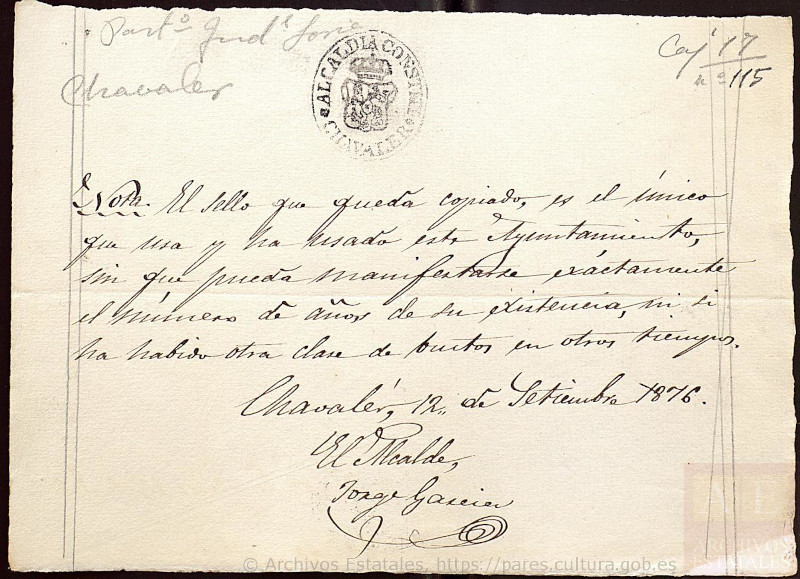 Part.º Jud.l Soria
Chavaler
Caj 17
nº 115
ALCALDIA CONSTNAL
CHAVALER
Nota. El sello que queda copiado, es el único
que usa y ha usado este Ayuntamiento,
sin que pueda manifestarse exáctamente
el número de años de su existencia, ni si
ha habido otra clase de en otros tiempos.
Chavalér, 12,, de Setiembre 1876.
El Alcalde,
Jorge Garcia
© Archivos Estatales, https://pares.cultura.gob.es
AE
ARCHIVOS
ESTATALES